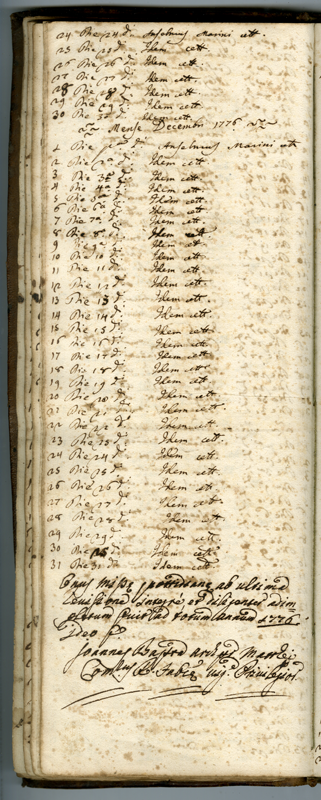 24 Die 24 d.ᵃ Anselmus Marini cett.
25 Die 25 d.ᵃ Idem cett.
26 Die 26 d.ᵃ Idem cett.
27 Die 27 d.ᵃ Idem cett.
28 Die 28 d.ᵃ Idem cett.
29 Die 29 d.ᵃ Idem cett.
30 Die 30 d.ᵃ Idem cett.
Mense Decembri 1776
1 Die p.ᵃ d.ᵃ Anselmus Marini cett.
2 Die 2ᵃ d.ᵃ Idem cett.
3 Die 3ᵃ d.ᵃ Idem cett.
4 Die 4ᵃ d.ᵃ Idem cett.
5 Die 5ᵃ d.ᵃ Idem cett.
6 Die 6ᵃ d.ᵃ Idem cett.
7 Die 7ᵃ d.ᵃ Idem cett.
8 Die 8ᵃ d.ᵃ Idem cett.
9 Die 9ᵃ d.ᵃ Idem cett.
10 Die 10 d.ᵃ Idem cett.
11 Die 11 d.ᵃ Idem cett.
12 Die 12 d.ᵃ Idem cett.
13 Die 13 d.ᵃ Idem cett.
14 Die 14 d.ᵃ Idem cett.
15 Die 15 d.ᵃ Idem cett.
16 Die 16 d.ᵃ Idem cett.
17 Die 17 d.ᵃ Idem cett.
18 Die 18 d.ᵃ Idem cett.
19 Die 19 d.ᵃ Idem cett.
20 Die 20 d.ᵃ Idem cett.
21 Die 21 d.ᵃ Idem cett.
22 Die 22 d.ᵃ Idem cett.
23 Die 23 d.ᵃ Idem cett.
24 Die 24 d.ᵃ Idem cett.
25 Die 25 d.ᵃ Idem cett.
26 Die 26 d.ᵃ Idem cett.
27 Die 27 d.ᵃ Idem cett.
28 Die 28 d.ᵃ Idem cett.
29 Die 29 d.ᵃ Idem cett.
30 Die 30 d.ᵃ Idem cett.
31 Die 31 d.ᵃ Idem cett.
Onus missæ quotidianæ ab ultima
revisione integre et diligenter adim-
pletum fuit ad totum annum 1776
Ideo
Joannes